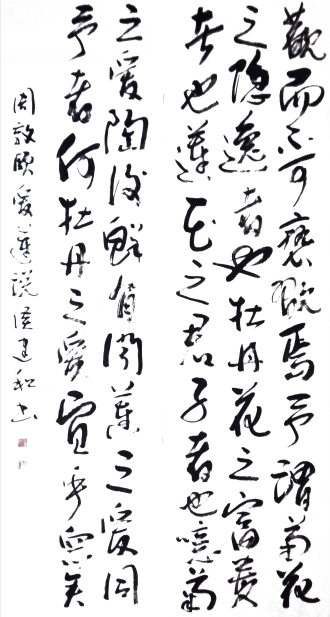 觀而不可褻翫焉予謂菊花
之隐逸者也牡丹花之富貴
者也蓮花之君子者也噫菊
之愛陶後鮮有聞蓮之愛同
予者何牡丹之愛宜乎眾矣
周敦頤愛蓮説侯建和書